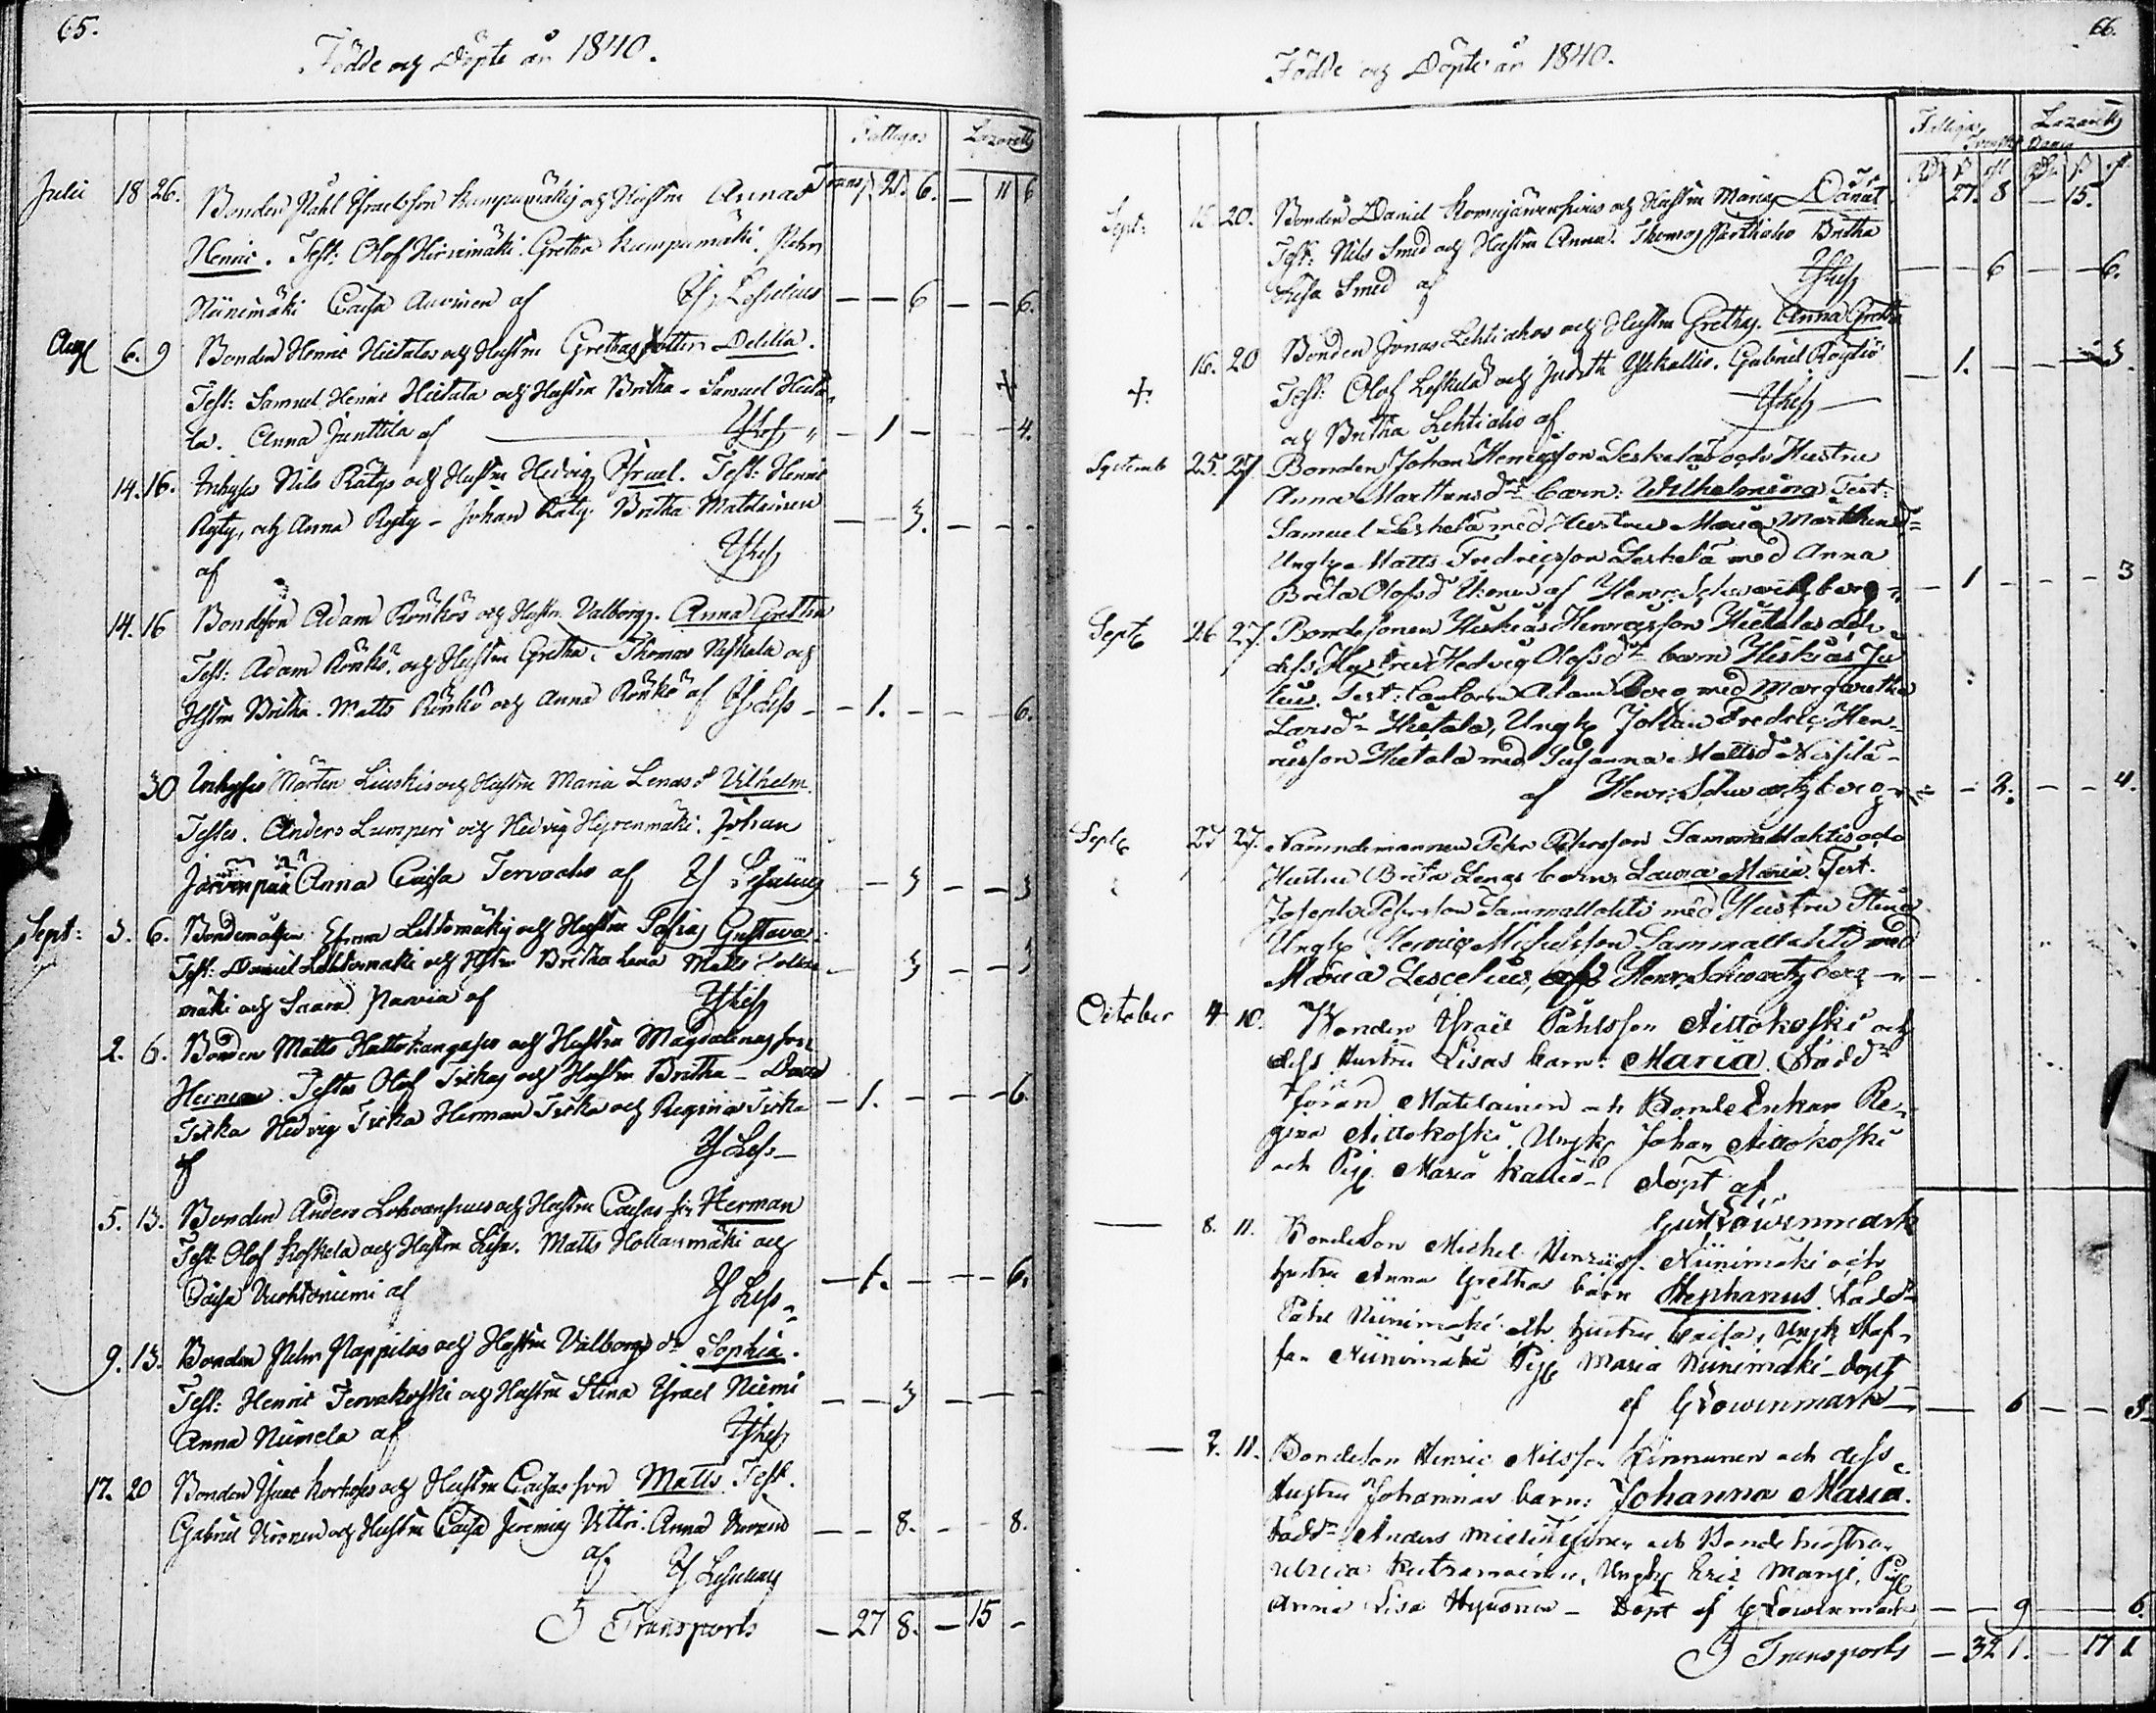 65.
Födde och Döpte år 1840.
Fattigas Lazaretts
Transp. 25. 6. — 11 6
Julii 18 26. Bonden Påhl Israelsson Kumpumäkis och Hustru Annas
Henric. Test: Olof Hirvimäki. Gretha Kumpumäki. Pehr
Niinimäki Caisa Auvinen af — — 6 — — 6.
Aug 6. 9 Bonden Henric Hietalas och Hustru Grethas dotter Delila.
Test: Samuel Henric Hietala och Hustru Britha - Samuel Hieta-
la. Anna Junttila af — 1 — — — 4.
14. 16. Inhyses Nils Rätys och Hustru Hedvigs Israel. Test: Henric
Räty, och Anna Räty - Johan Räty. Britha Matilainen — — 3. — — -
af
14. 16 Bondeson Adam Rönkös och Hustru Valborgs. Anna Gretha
Test: Adam Rönkö. och Hustru Gretha. Thomas Neskala och
Hstru Britha. Matts Rönkö och Anna Rönkö af — 1. — — — 6.
30 Inhyses Mårten Liuskis och Hustru Maria Lenas s Vilhelm.
Testes. Anders Lumperi och Hedvig Hyrenmäki. Johan
Järvenpää Anna Caisa Tervaoho af — 3 — — 3
Sept: 3. 6. Lehtomäkis och Hustru Sofias Gustava.
Test: Daniel Lehtomäki och Hstru Britha Lena Matts — 3 — — 3
mäki och Saara Parvia af
2. 6. Bonden Matts Hattukangases och Hustru Magdalenas son
Herman. Testes Olof Tiska och Hustru Britha - David
Tiska Hedvig Tiska Herman Tiska och Regina Tiska — 1. — — — 6.
af
5. 13. Bonden Anders och Hustru Caisas son Herman
Test: Olof Koskela och Hustru Lisa. Matts Hollanmäki och
Caisa Vuohtoniemi af — 1. — — — 6.
9. 13. Bonden Pehr Pappilas och Hustru Valborgs dr Sophia.
Test: Henric Tervakoski och Hustru Stina Israel Niemi — — 3 — — —
Anna Niimela af
17. 20 Bonden Isaac Korhoses och Hustru Caisas son Matts. Test.
Gabriel Kinnunen och Hustru Caisa Jeremias Vittri. Anna — — 8. - — 8.
af
Transports — 27 8. — 15 —
66.
Födde och Döpte år 1840.
Fattigas Lazaretts
27. 8 — 15.
Sept: 15. 20. Bonden Daniel och Hustru Marias Daniel.
Test: Nils Smed och Hustru Anna. Thomas Parkiaho Britha
Lisa Smed af — — 6 — — 6.
+ 16. 20 Bonden Jonas Lehtiahos och Hustru Grethas. Anna Gretha
Test: Olof Leskelä och Judith Ylikallio. Gabriel
och Britha Lehtiaho af — 1. — — — 3.
Septemb 25. 27 Bonden Johan Henricsson Leskeläs och Hustru
Anna Marttensdr barn: Wilhelmina Test:
Samuel Leskelä med Hustru Maria Marttensd-
Ungk. Matts Fredricsson Leskelä med Anna
Brita Olofsd af Henr. Schwartzberg — 1 — — — 3
Septb 26 27. Bondesonen Heskias Henricsson Hietalas och
dess Hustru Hedvig Olofsdr barn Heskias Ju-
lius. Test: Cantorn Adam Borg med Margaretha
Larsdr Hietala, Ungk. Johan Fredric Hen-
ricsson Hietala med Susanna Mattsd Nissilä
af Henr. Schwartzberg — 2. — — — 4.
Septb 27 27. Nämndemannen Pehr Pehrsson Sammallahtis och
Hustru Brita Lenas barn, Laura Maria. Test.
Joseph Pehrsson Sammallahti med Hustru Stina
Ungk. Henric Michelsson Sammallahti med
Maria Lescelius, af Henr. Schwartzberg —
October 4 10. Bonden Israel Påhlsson Aittokoski och
dess Hustru Lisas barn: Maria. Faddr
Jöran Matilainen och Bonde Enkan Re-
gina Aittokoski. Ungk. Johan Aittokoski
och Pig. Maria Kallio. döpt af
Gust Löwenmark
— 8. 11. BondeSon Michel Henricss. Niinimäki och
hustru Anna Grethas barn Stephanus. Faddr
Påhl Niinimäki och hustru Caisa, Ungk. Staf-
fan Niinimäki Pig. Maria Niinimäki - döpt
af G Löwenmark — — 6 — — 3.
— 7. 11. Bondeson Henric Nilsson Kinnunen och dess
Hustru Johannas barn: Johanna Maria.
Faddr Anders och Bonde hustrun
Ulrica Ungk. Eric Manje, Pig.
Anna Lisa Hyvönen - Döpt af G Löwenmark — — 9 — — 6.
Transports — 32 1. — 17 1